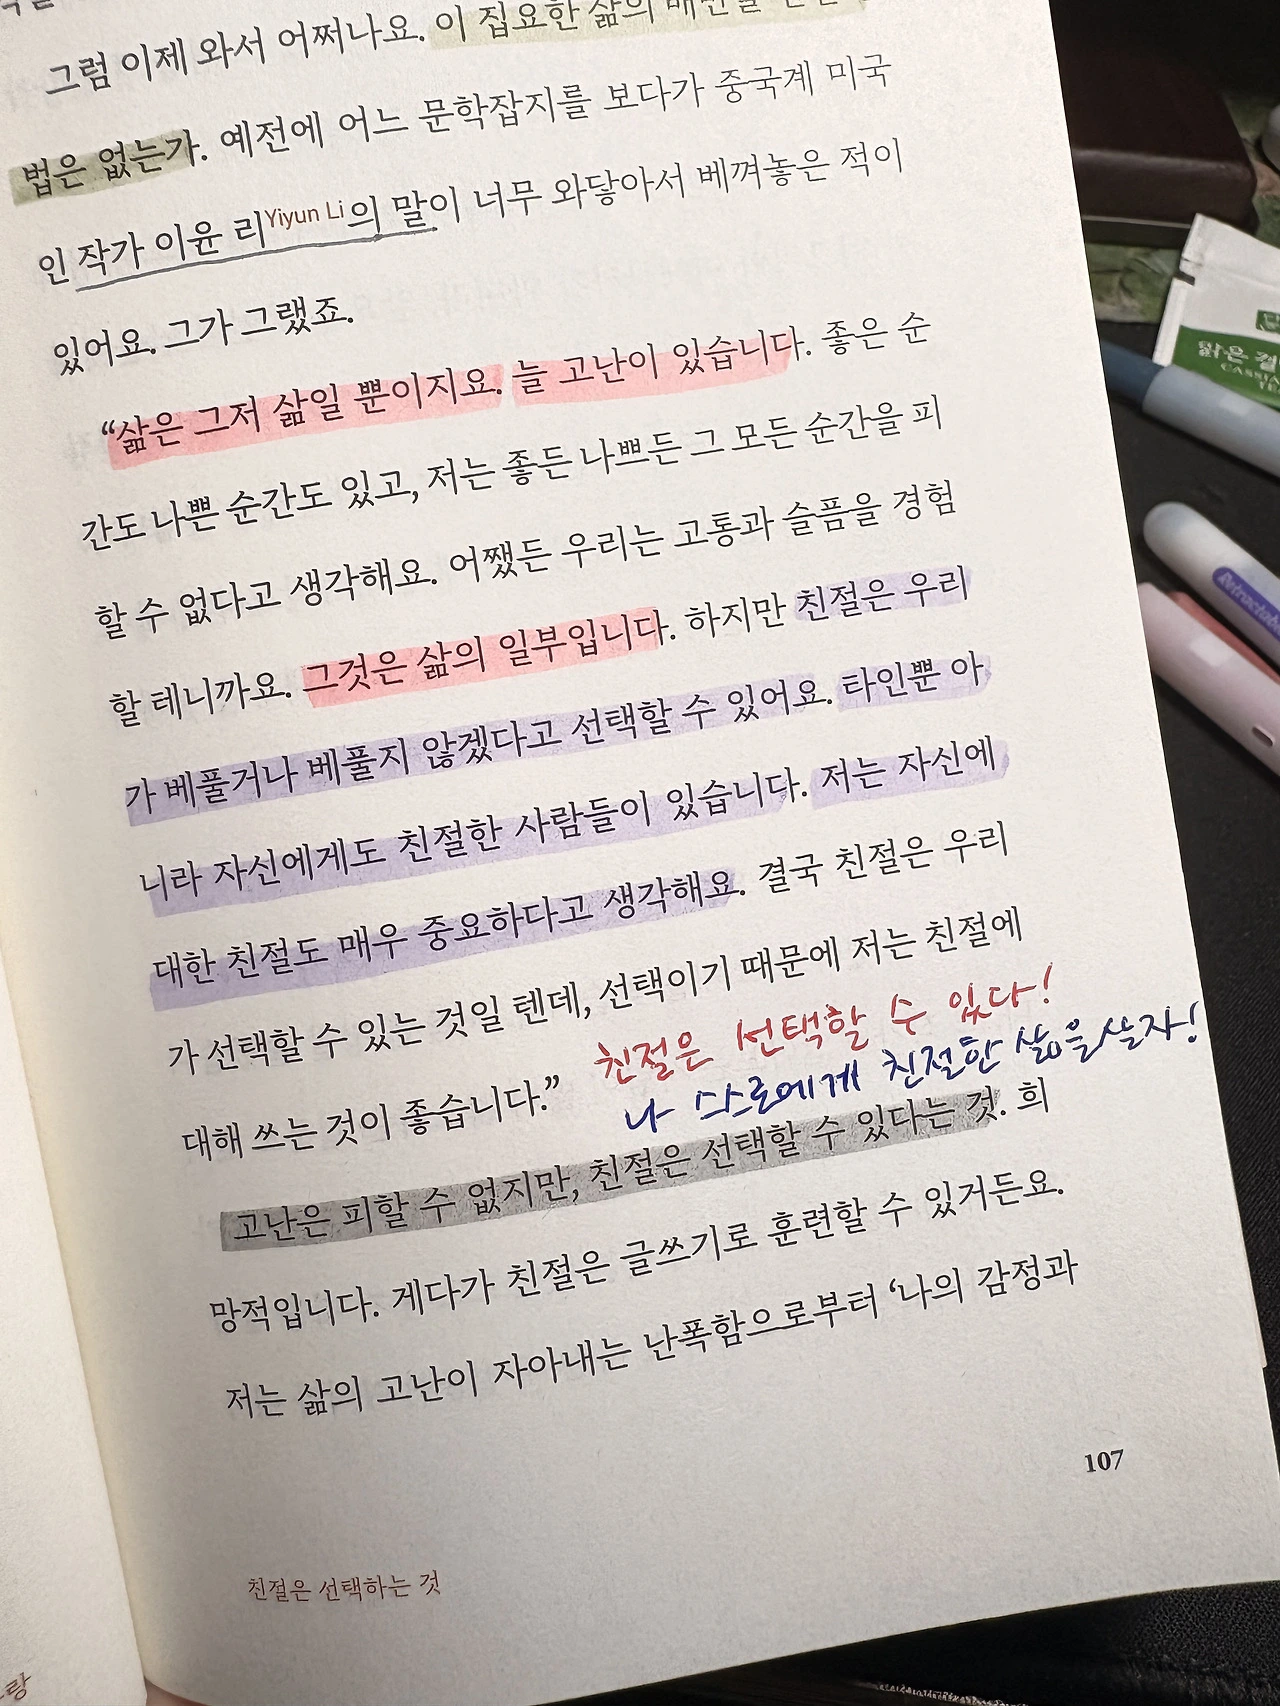 그럼 이제 와서 어쩌나요. 이 집요한 삶의
법은 없는가. 예전에 어느 문학잡지를 보다가 중국계 미국
인 작가 이윤 리Yiyun Li의 말이 너무 와닿아서 베껴놓은 적이
있어요. 그가 그랬죠.
“삶은 그저 삶일 뿐이지요. 늘 고난이 있습니다. 좋은 순
간도 나쁜 순간도 있고, 저는 좋든 나쁘든 그 모든 순간을 피
할 수 없다고 생각해요. 어쨌든 우리는 고통과 슬픔을 경험
할 테니까요. 그것은 삶의 일부입니다. 하지만 친절은 우리
가 베풀거나 베풀지 않겠다고 선택할 수 있어요. 타인뿐 아
니라 자신에게도 친절한 사람들이 있습니다. 저는 자신에
대한 친절도 매우 중요하다고 생각해요. 결국 친절은 우리
가 선택할 수 있는 것일 텐데, 선택이기 때문에 저는 친절에
대해 쓰는 것이 좋습니다.”
친절은 선택할 수 있다!
나 스스로에게 친절한 삶을 살자!
고난은 피할 수 없지만, 친절은 선택할 수 있다는 것. 희
망적입니다. 게다가 친절은 글쓰기로 훈련할 수 있거든요.
저는 삶의 고난이 자아내는 난폭함으로부터 ‘나의 감정과
107
친절은 선택하는 것
맑은
CASSIA
Retractable